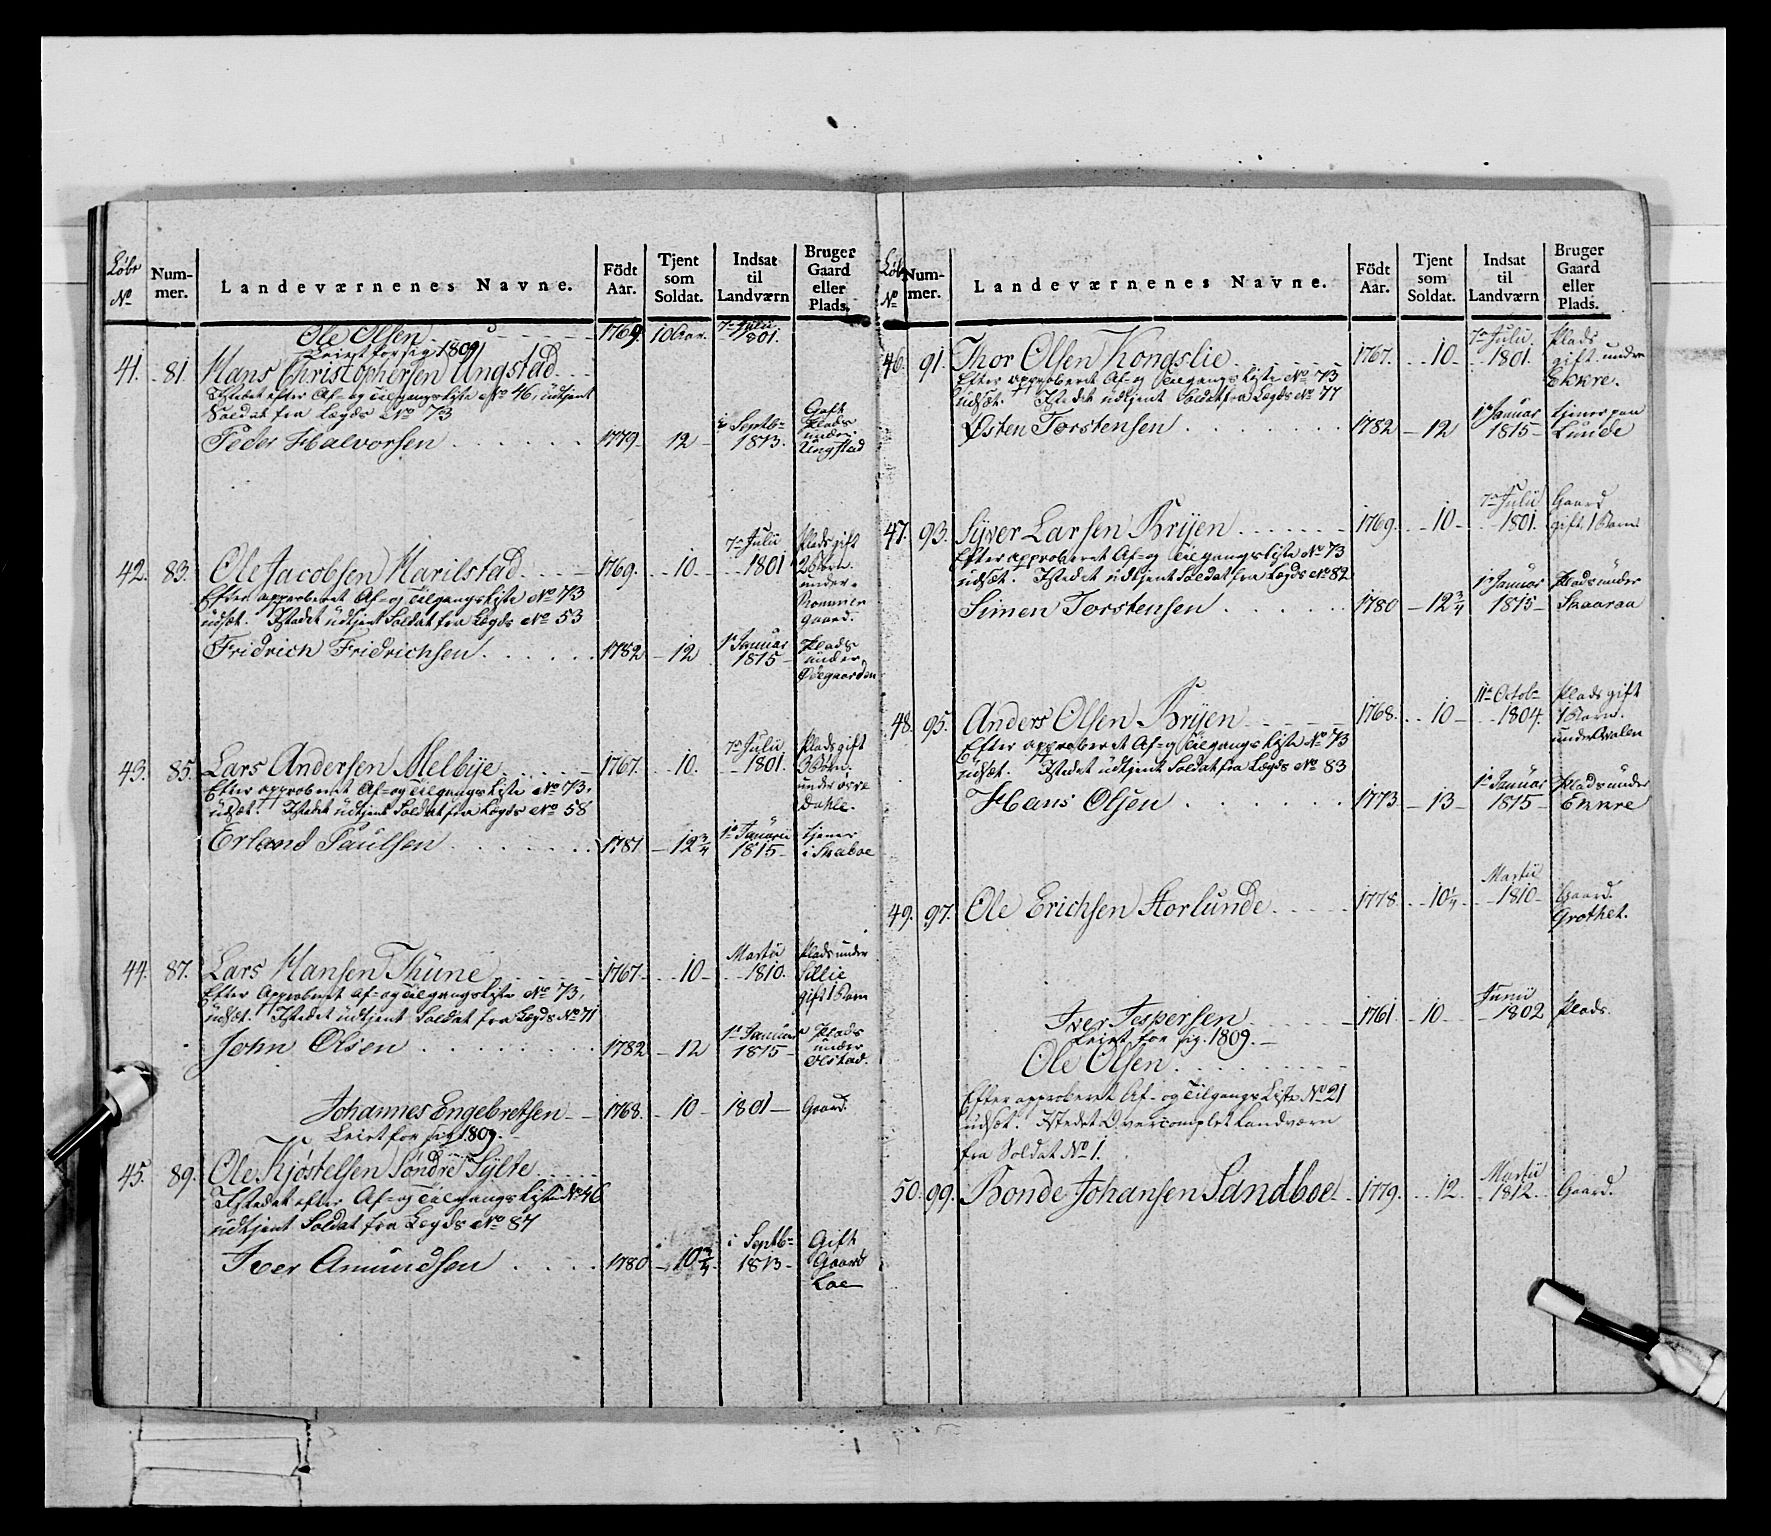 Løbe No | Nummer. | Landeværnenes Navne. | Födt Aar. | Tjent som Soldat. | Indsat til Landværn | Bruger Gaard eller Plads.
Ole Olsen 1769. 10 Aar. 7de Julii 1801.
Leiet for sig 1809
41. 81. Hans Christophersen Ungstad
Istedet efter Af- og Tilgangsliste No 46, udtjent
Soldat fra Lægds No 73
Peder Halvorsen 1779 12 Septbr 1813. Gift Plads under Ungstad
42. 83. Ole Jacobsen Harilstad 1769. 10 7de Julii 1801 Plads gift 2 Børn under Rommengaard.
Efter approberet Af- og Tilgangsliste No 73
udsæt. Istedet udtjent Soldat fra Lægds No 53
Fridrich Fridrichsen 1782 12 1de Januar 1815 Plads under Ødegaarden
43. 85. Lars Andersen Melbye 1767. 10. 7de Julii 1801. Plads gift 3 Børn under Dahle.
Efter approberet Af- og Tilgangsliste No 73.
udsæt. Istedet udtjent Soldat fra Lægds No 58
Erland Paulsen 1781 12 3/4 1de Januarii 1815 tjener i Skaboe
44. 87. Lars Hansen Thune 1767 10 Martii 1810. Plads under Lillie gift 1 Barn
Efter Approberet Af- og Tilgangsliste No 73,
udsæt. Istedet udtjent Soldat fra Lægds No 71
John Olsen 1782 12 1de Januar 1815 Plads under Olstad.
Johannes Engebretsen 1768. 10 1801 Gaard.
Leiet for sig 1809.
45. 89. Ole Kjøstelsen Søndre Sylte
Istedet efter Af- og Tilgangsliste No 46
udtjent Soldat fra Lægds No 87
Iver Amundsen 1780 10 3/4 Septbr 1813 Gift Gaard Loe
Løbe No | Nummer. | Landeværnenes Navne. | Födt Aar. | Tjent som Soldat. | Indsat til Landværn | Bruger Gaard eller Plads.
46. 91. Thor Olsen Kongslie 1767. 10 7de Julii 1801. Plads gift under Ekkre.
Efter approberet Af- og Tilgangsliste No 73
udsæt. Istedet udtjent Soldat fra Lægds No 77
Østen Torstensen 1782 12 1de Januar 1815 tjener paa Lunde
47. 93. Syver Larsen Bryen 1769. 10 7de Julii 1801. Gaard gift 1 Barn
Efter approberet Af- og Tilgangsliste No 73
udsæt. Istedet udtjent Soldat fra Lægds No 82
Simen Torstensen 1780 12 3/4 1de Januar 1815 Plads under Skaaraa
48. 95. Anders Olsen Bryen 1768. 10 11te Octobr 1804. Plads gift 1 Barn. under Valen
Efter approberet Af- og Tilgangsliste No 73
udsæt. Istedet udtjent Soldat fra Lægds No 83
Hans Olsen 1773 13 1de Januar 1815 Plads under Ekkre
49. 97. Ole Erichsen Storlunde 1778. 10 1/4 Martii 1810 Gaard. Grothet.
Iver Jespersen 1761 10 Junii 1802 Plads.
Leiet for sig. 1809.
Ole Olsen
Efter approberet Af- og Tilgangs Liste No 21
udsæt. Istedet Overcomplet Landværn
fra Soldat No 1.
50. 99. Bonde Johansen Sandboe 1779. 12. Martii 1812. Gaard.